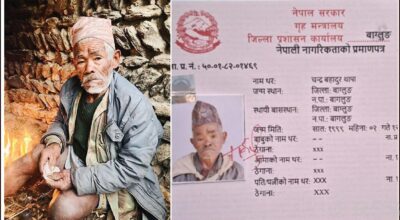 नेपाल सरकार
गृह मन्त्रालय
जिल्ला प्रशासन कार्यालय बाग्लुङ
नेपाली नागरिकताको प्रमाणपत्र
प्र. नं.: ५०-०१-८२-०१४६९
नाम थर: चन्द्र बहादुर थापा
जन्म स्थान: जिल्ला: बाग्लुङ
न.पा.: बाग्लुङ
स्थायी बासस्थान: जिल्ला: बाग्लुङ
न.पा.: बाग्लुङ
जन्म मिति: साल: १९९९ महिना: ०२ गते
बाबुको नाम थर: --
ठेगाना: xxx
आमाको नाम थर: --
ठेगाना: XXX
पति/पत्नीको नाम थर: XXX
ठेगाना: XXX